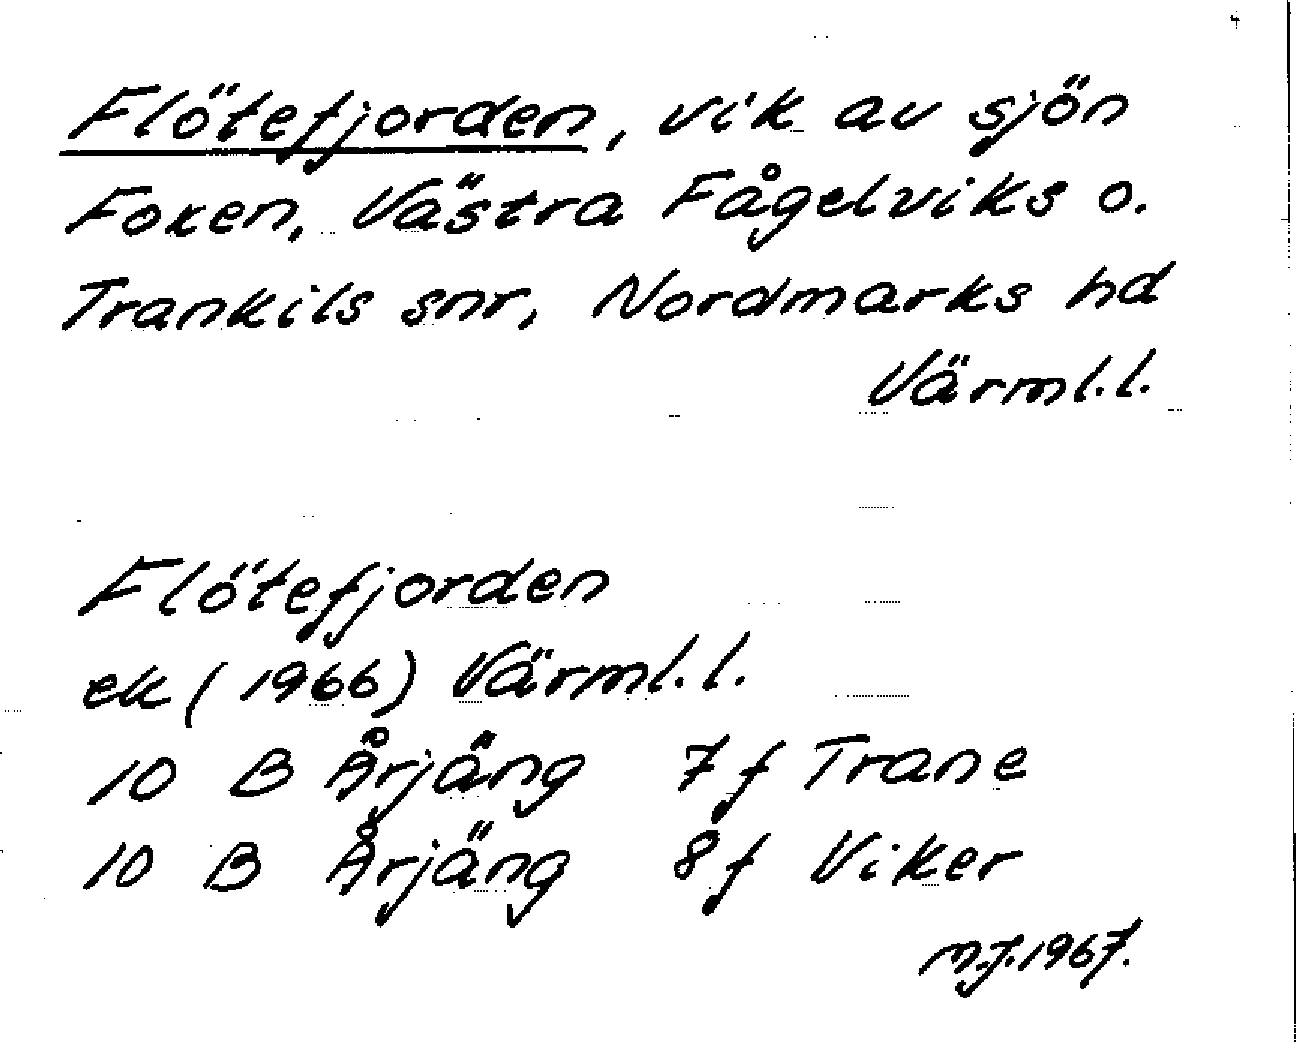 Flötefjorden, vik av sjön
Foxen, Västra Fågelviks o.
Trankils snr, Nordmarks hd
Värml.l.
Flötefjorden
ek (1966) Värml.l.
10 B Årjäng 7f Trane
10 B Årjäng 8f Viker
M.J. 1967.